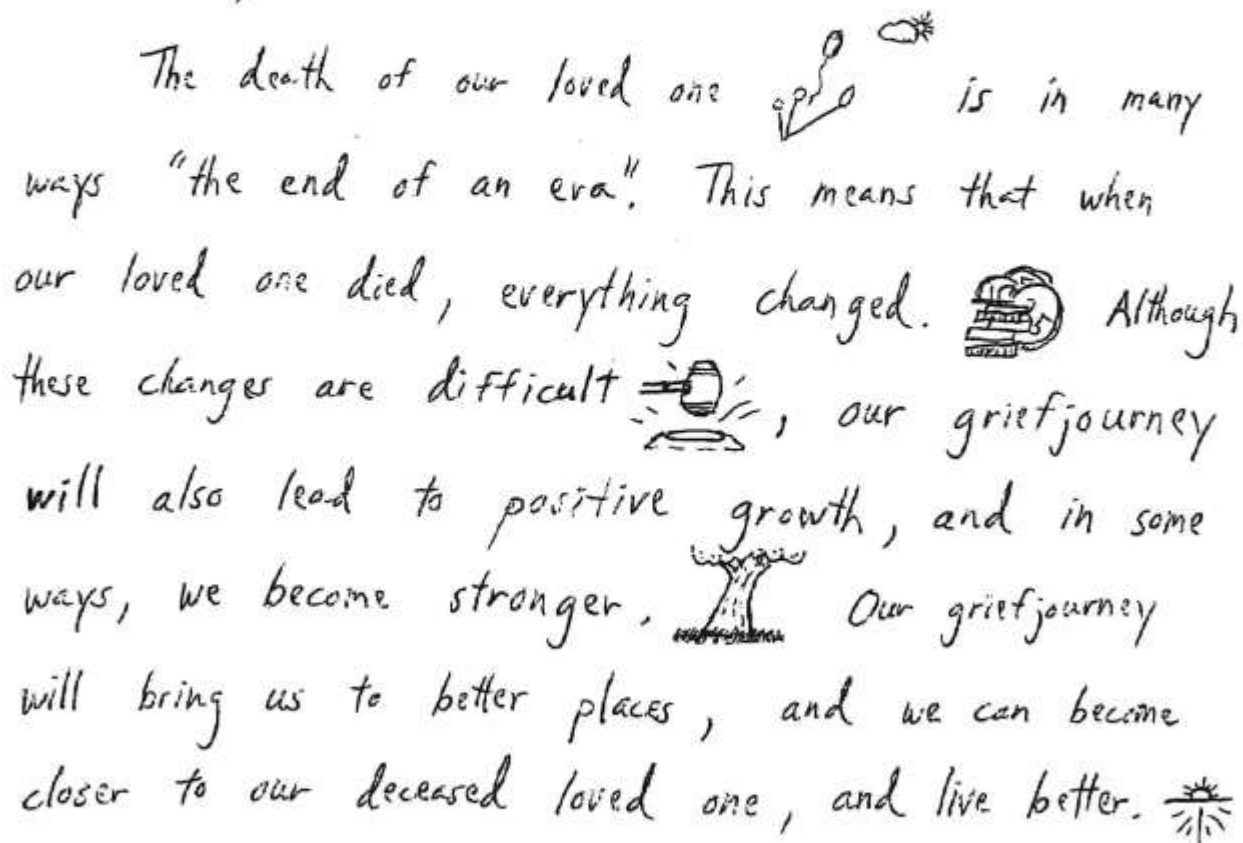 The death of our loved one is in many
ways "the end of an era". This means that when
our loved one died, everything changed. Although
these changes are difficult, our griefjourney
will also lead to positive growth, and in some
ways, we become stronger. Our griefjourney
will bring us to better places, and we can become
closer to our deceased loved one, and live better.